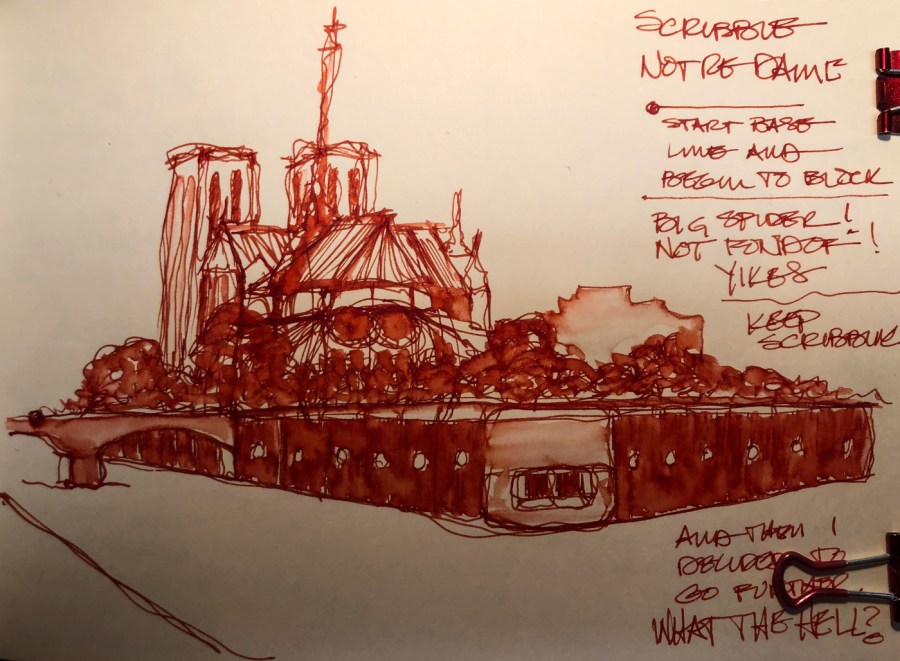 SCRIBBLE
NOTRE DAME
START BASE
LINE AND
BEGIN TO BLOCK
BIG SPIDER!
NOT FOND OF!
YIKES
KEEP
SCRIBBLING
AND THEN I
DECIDED TO
GO FURTHER
WHAT THE HELL?